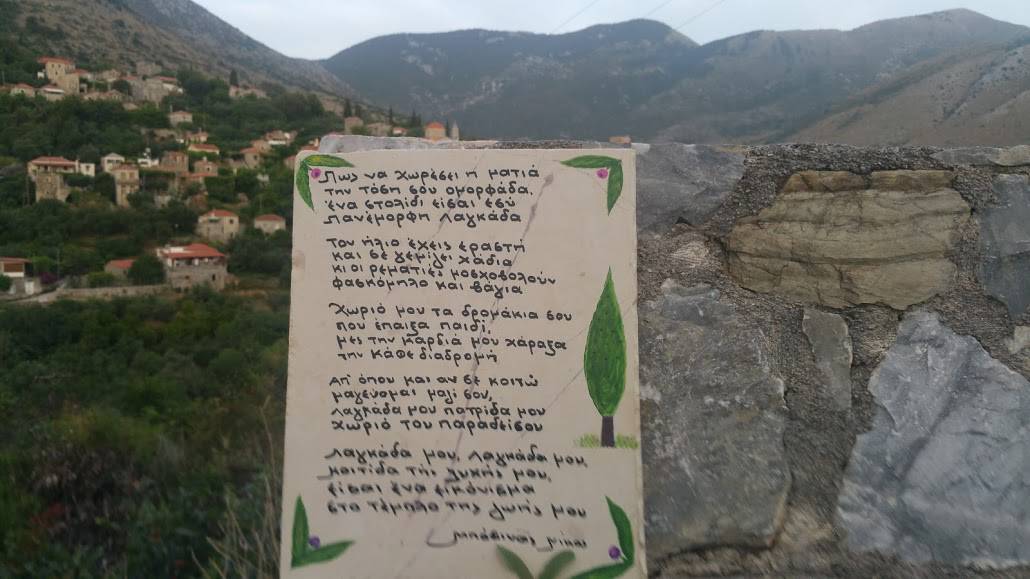 Πως να χωρέσει η ματιά
την τόση σου ομορφάδα,
ένα στολίδι είσαι εσύ
πανέμορφη Λαγκάδα
Τον ήλιο έχεις εραστή
και σε γεμίζει χάδια
κι οι ρεματιές μοσχοβολούν
φασκόμηλο και βάγια
Χωριό μου τα δρομάκια σου
που έπαιξα παιδί,
μες την καρδιά μου χάραξα
την κάθε διαδρομή
Απ' όπου και αν σε κοιτώ
μαγεύομαι μαζί σου,
Λαγκάδα μου πατρίδα μου
χωριό του παραδείσου
Λαγκάδα μου, Λαγκάδα μου,
κοιτίδα της ψυχής μου,
είσαι ένα εικόνισμα
στο τέμπλο της ζωής μου